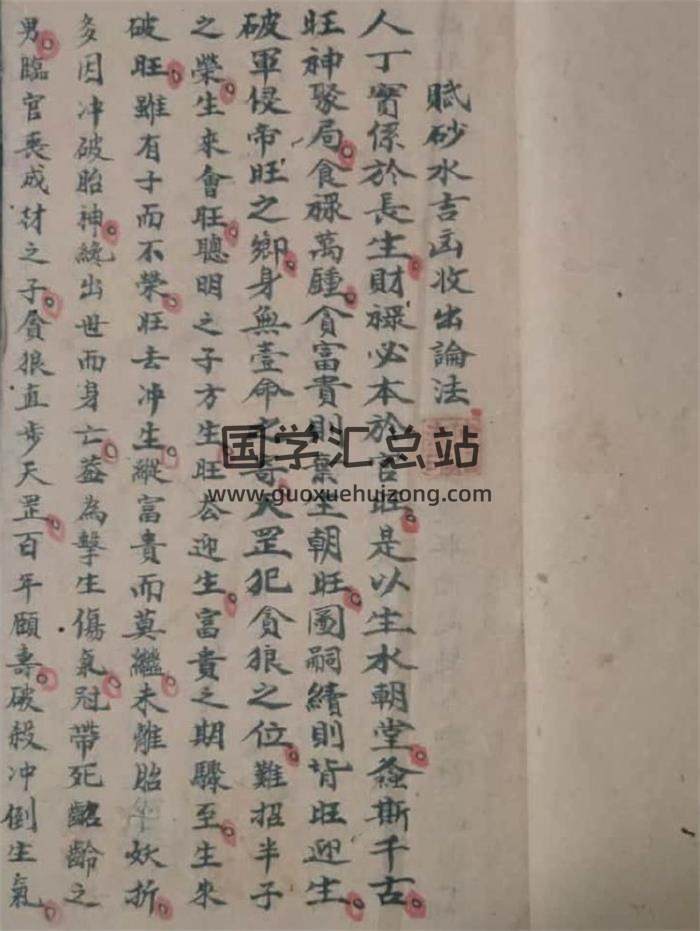 賦砂水吉凶收出論法
人丁實係於長生財祿必本於官旺是以生水朝堂螽斯千古
旺神聚局食祿萬鍾貪富貴則棄生朝旺圖嗣續則背旺迎生
破軍侵帝旺之鄉身無壹命之天罡犯貪狼之位難招半子
之榮生來會旺聰明之子方生旺去迎生富貴之期驟至生來
破旺雖有子而不榮旺去冲生縱富貴而莫繼未離胎妖折
多因冲破胎神纔出世而身亡蓋為擊生傷氣冠帶死齠齡之
男臨官喪成材之子貪狼直步天罡百年頤壽破殺冲倒生氣
国学汇总站
www.guoxuehuizong.com